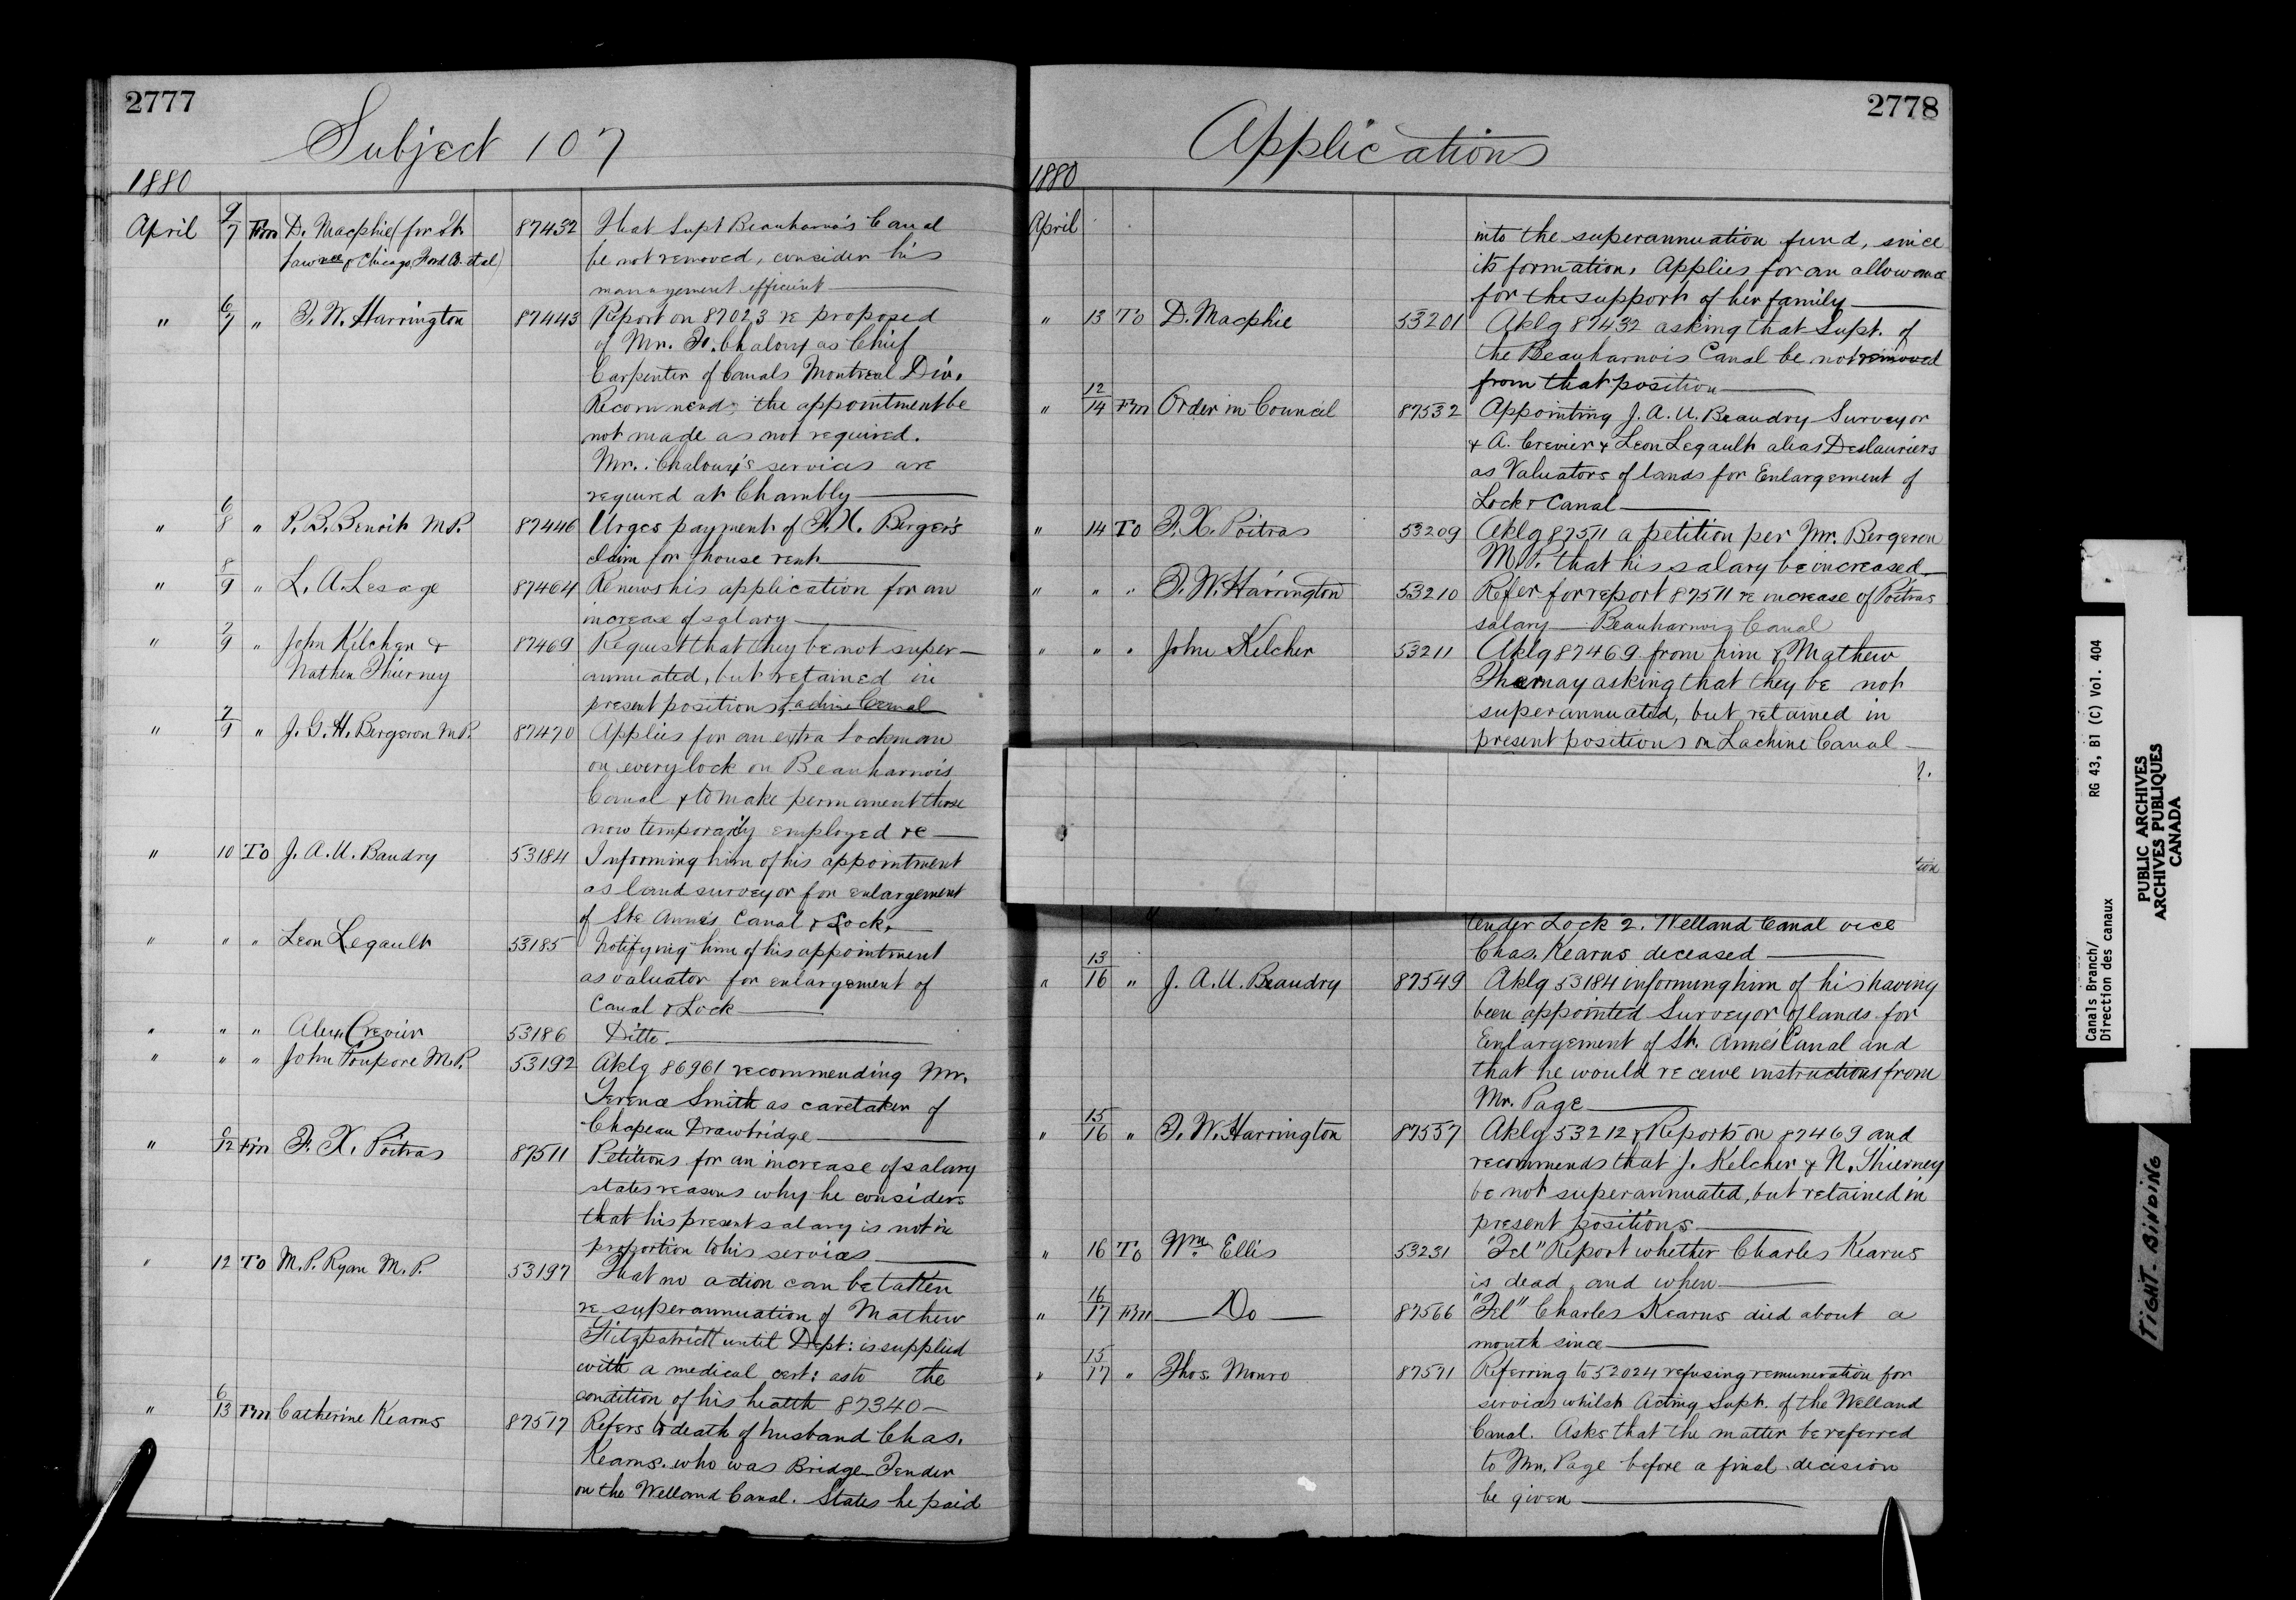 2777
Subject 107
1880
April 9/7 Fm D. Macphie (for St. 87432 That Supt Beauharnois Canal
Lawrce & Chicago Ford Co. et al) be not removed, consider his
management efficient
" 6/7 " T. W. Harrington 87443 Report on 87023 re proposed
of Mr. F. Chaloux as Chief
Carpenter of Canals Montreal Div.
Recommends the appointment be
not made as not required.
Mr. Chaloux's services are
required at Chambly
" 6/8 " P. B. Benoit M.P. 87446 Urges payment of F. X. Berger's
claim for house rent
" 8/9 " L. A. Lesage 87464 Renews his application for an
increase of salary
" 7/9 " John Kilcher & 87469 Request that they be not super-
Nathen Thierney annuated, but retained in
present positions, Lachine Canal
" 7/9 " J. G. H. Bergeron M.P. 87470 Applies for an extra Lockman
on every lock on Beauharnois
Canal & to make permanent those
now temporarily employed re
" 10 To J. A. U. Baudry 53184 Informing him of his appointment
as land surveyor for enlargement
of Ste Anne's Canal & Lock.
" " " Leon Legault 53185 Notifying him of his appointment
as valuator for enlargement of
Canal & Lock
" " " Alex Crevier 53186 Ditto.
" " " John Poupore M.P. 53192 Aklg 86961 recommending Mr.
Terence Smith as caretaker of
Chapeau Drawbridge
" 9/12 Fm F. X. Poitras 87511 Petitions for an increase of salary
states reasons why he considers
that his present salary is not in
proportion to his services
" 12 To M. P. Ryan M.P. 53197 That no action can be taken
re superannuation of Mathew
Fitzpatrick until Dept: is supplied
with a medical cert: as to the
condition of his health 87340
" 6/13 Fm Catherine Kearns 87517 Refers to death of husband Chas.
Kearns. who was Bridge Tender
on the Welland Canal. States he paid
2778
Applications
1880
April into the superannuation fund, since
its formation. Applies for an allowance
for the support of her family
" 13 To D. Macphie 53201 Aklg 87432 asking that Supt. of
the Beauharnois Canal be not removed
from that position
" 12/14 Fm Order in Council 87532 Appointing J. A. U. Beaudry Surveyor
& A. Crevier & Leon Legault alias Deslauriers
as Valuators of lands for Enlargement of
Lock & Canal
" 14 To F. X. Poitras 53209 Aklg 87511 a petition per Mr. Bergeron
M.P. that his salary be increased
" " " T. W. Harrington 53210 Refer for report 87511 re increase of Poitras
salary Beauharnois Canal
" " " John Kelcher 53211 Aklg 87469 from him & Mathew
Thernay asking that they be not
superannuated, but retained in
present positions on Lachine Canal
?.
tion
tender Lock 2. Welland Canal vice
Chas. Kearns deceased
" 13/16 " J. A. U. Beaudry 87549 Aklg 53184 informing him of his having
been appointed Surveyor of lands for
Enlargement of St. Annes Canal and
that he would receive instructions from
Mr. Page
" 15/16 " T. W. Harrington 87557 Aklg 53212 & Reports on 87469 and
recommends that J. Kelcher & N. Thierney
be not superannuated, but retained in
present positions
" 16 To Wm Ellis 53231 "Tel" Report whether Charles Kearns
is dead and when
" 16/17 Fm Do 87566 "Tel" Charles Kearns died about a
month since
" 15/17 " Thos. Monro 87571 Referring to 52024 refusing remuneration for
services whilst Acting Supt. of the Welland
Canal. Asks that the matter be referred
to Mr. Page before a final decision
be given
Canals Branch/ RG 43, B1 (C) Vol. 404
Direction des canaux
PUBLIC ARCHIVES
ARCHIVES PUBLIQUES
CANADA
TIGHT BINDING